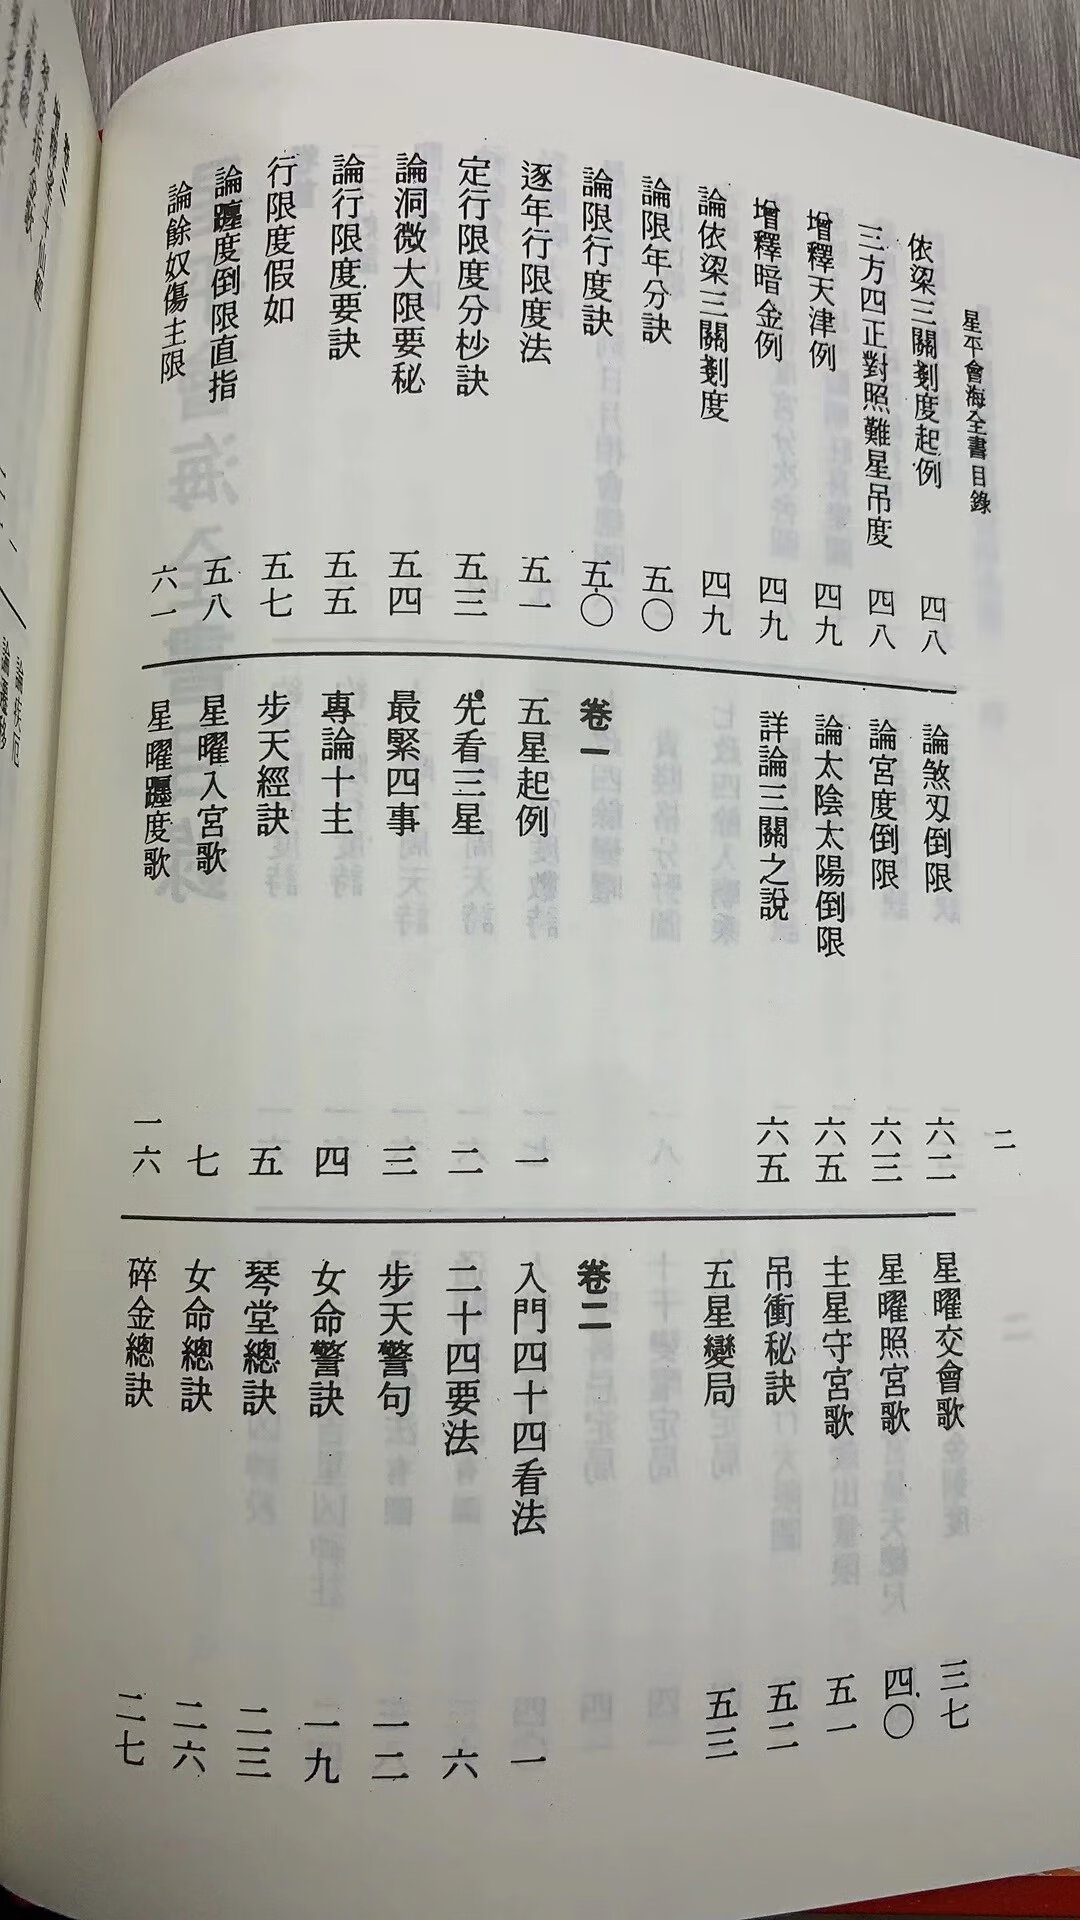 星平會海全書 目錄
二
依梁三關剗度起例 四八
三方四正對照難星吊度 四八
增釋天津例 四九
增釋暗金例 四九
論依梁三關剗度 四九
論限年分訣 五〇
論限行度訣 五〇
逐年行限度法 五一
定行限度分杪訣 五三
論洞微大限要秘 五四
論行限度要訣 五五
行限度假如 五七
論躔度倒限直指 五八
論餘奴傷主限 六一
論煞刃倒限 六二
論宮度倒限 六三
論太陰太陽倒限 六五
詳論三關之說 六五
卷一
五星起例 一
先看三星 二
最緊四事 三
專論十主 四
步天經訣 五
星曜入宮歌 七
星曜躔度歌 一六
星曜交會歌 三七
星曜照宮歌 四〇
主星守宮歌 五一
吊衝秘訣 五二
五星變局 五三
卷二
入門四十四看法 一
二十四要法 六
步天警句 一二
女命警訣 一九
琴堂總訣 二三
女命總訣 二六
碎金總訣 二七